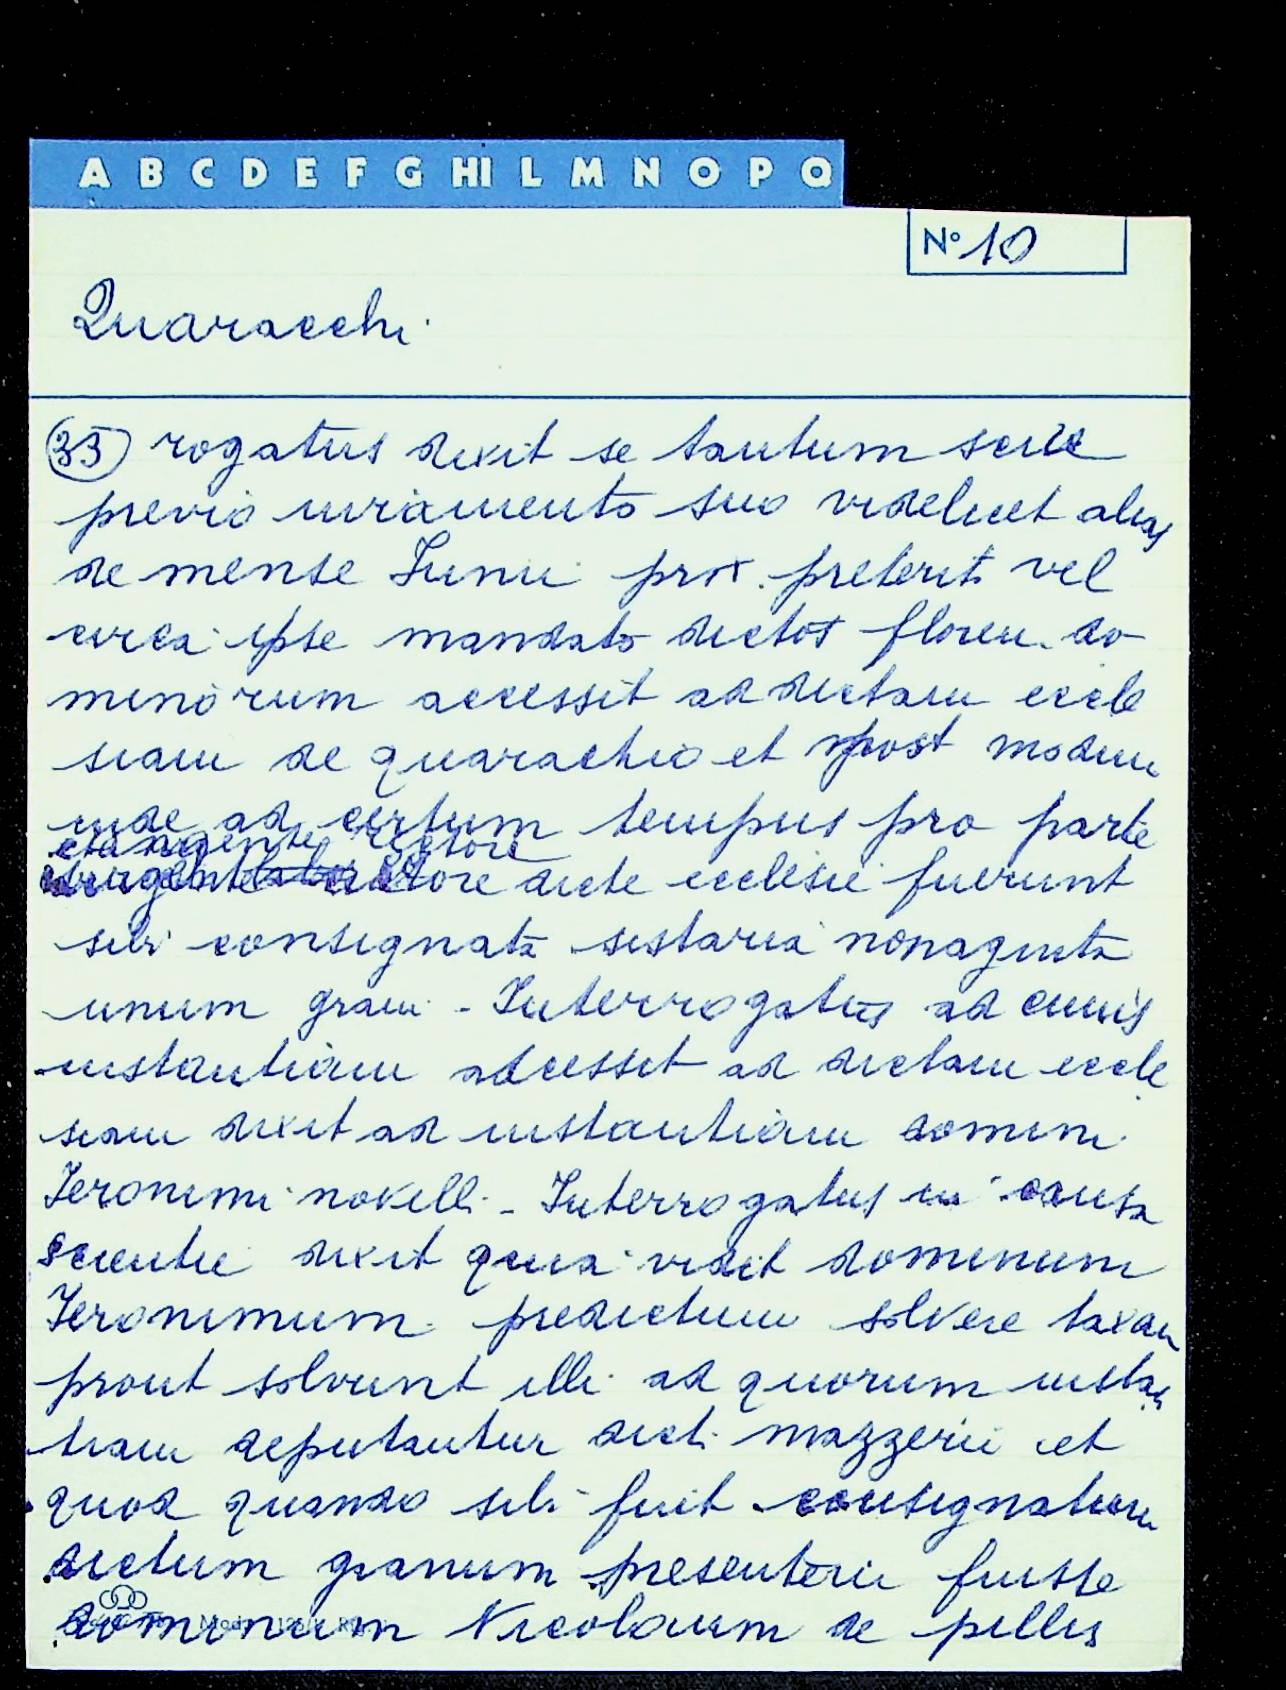 A B C D E F G HI L M N O P Q
No 10
Quaracchi
33 rogatus dixit se tantum scire
previo iuramento suo videlicet alias
de mense Iunii prox. preterit. vel
circa ipse mandato dictor floren. do
minorum accessit ad dictam eccle
siam de quarachio et post modum
inde ad certum tempus pro parte
rectore
dicte ecclesie fuerunt
sibi consignata sestaria nonaginta
unum grani - Interrogatus ad cuius
instantiam adcessit ad dictam eccle
siam dixit ad instantiam domini
Ieronimi novelli - Interrogatus in causa
scientie dixit quia vidit dominum
Ieronimum predictum solvere taxam
prout solvunt illi ad quorum instan
tiam deputantur dicti mazzerii et
quod quando sibi fuit consignatum
dictum granum presenterii fuisse
dominum Nicolaum de pillis